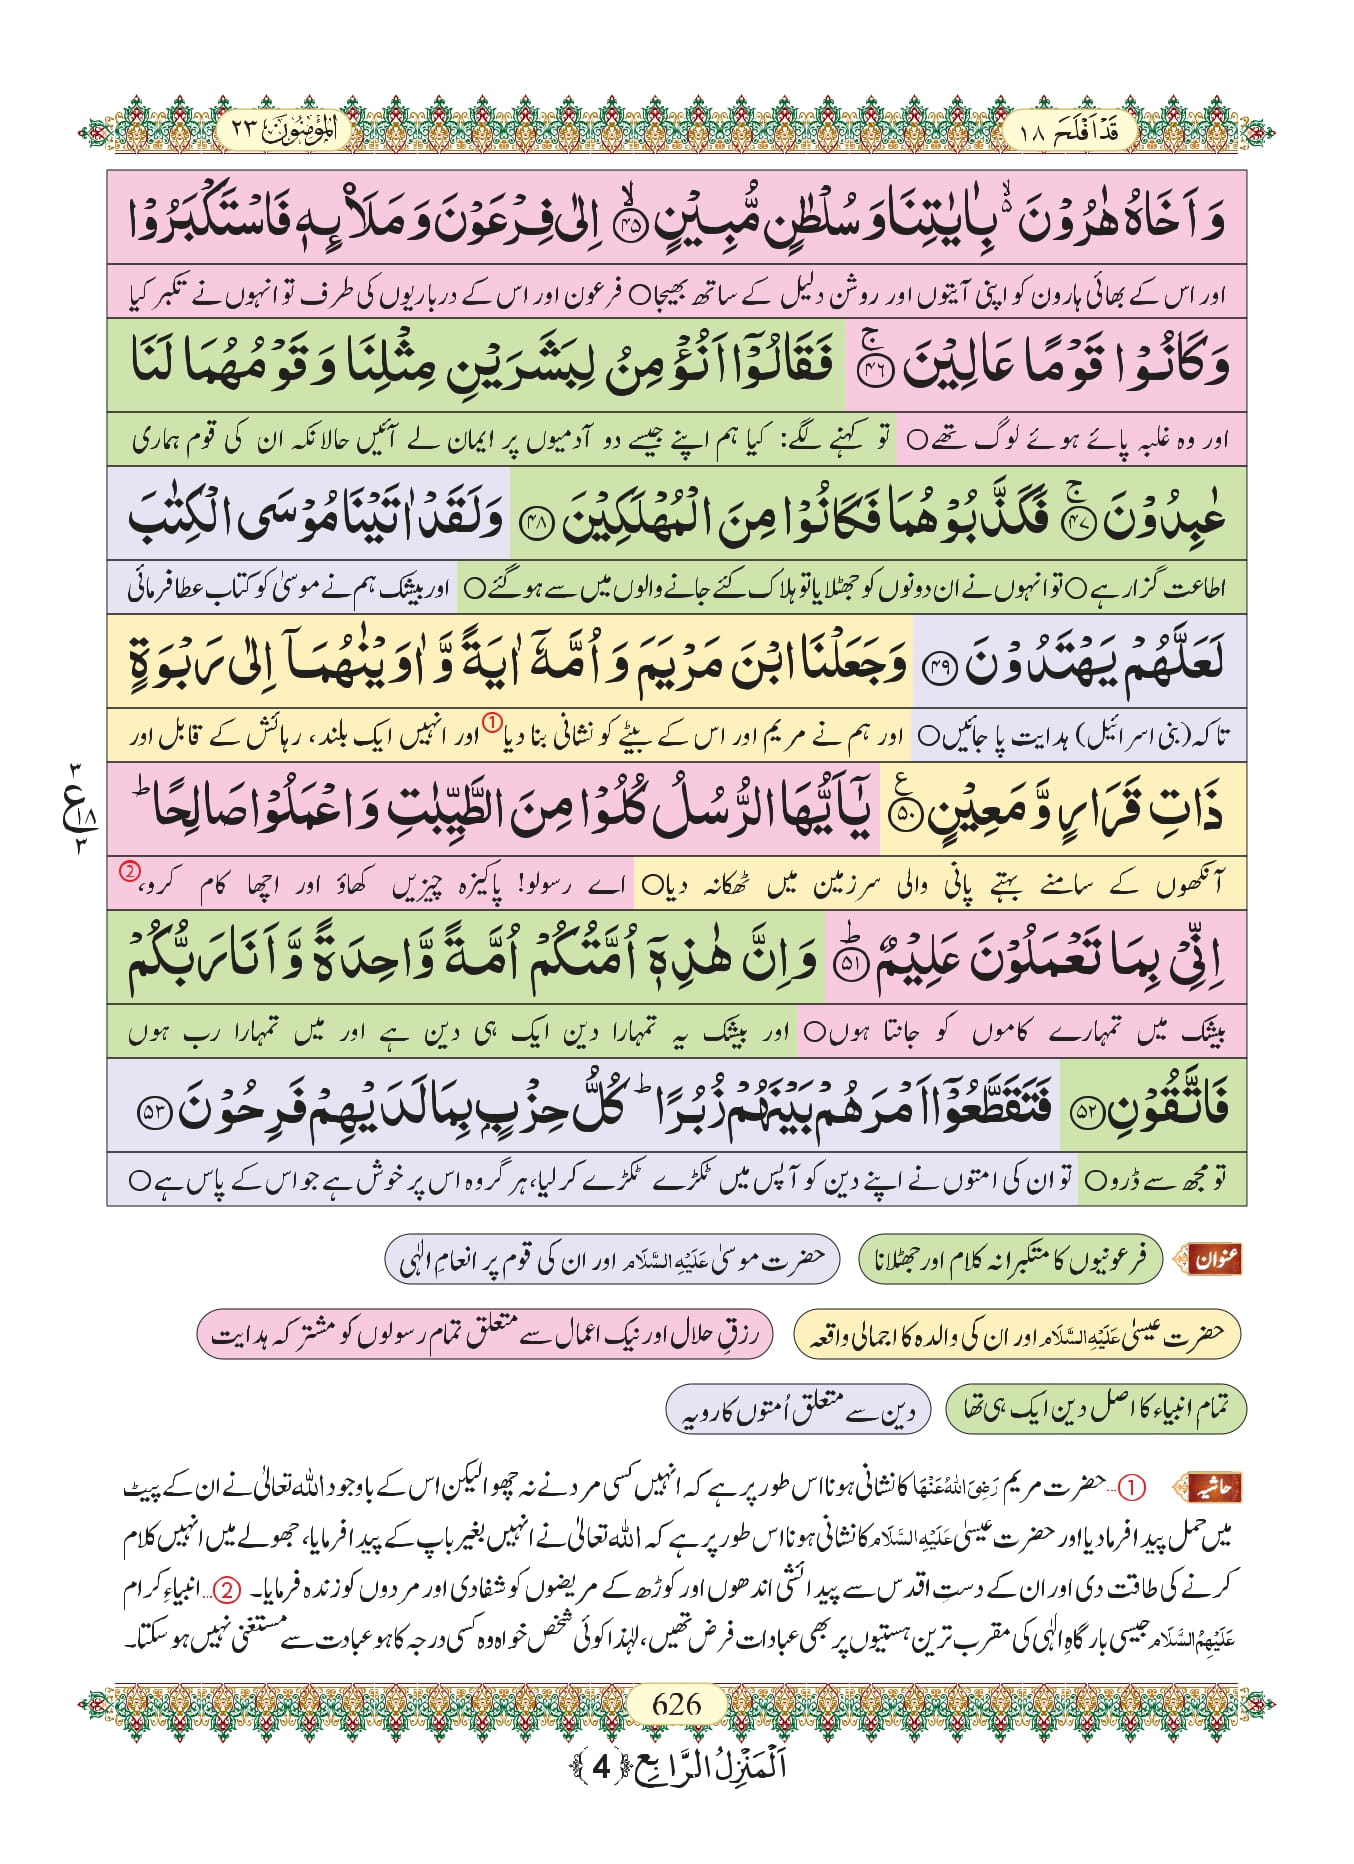 قَدْ اَفْلَحَ ۱۸
الْمُؤْمِنُوْن ۲۳
وَ اَخَاهُ هٰرُوْنَ ﳔ بِاٰیٰتِنَا وَ سُلْطٰنٍ مُّبِیْنٍۙ﴿۴۵﴾ اِلٰى فِرْعَوْنَ وَ مَلَاۡىٕهٖ فَاسْتَكْبَرُوْا
اور اس کے بھائی ہارون کو اپنی آیتوں اور روشن دلیل کے ساتھ بھیجا○ فرعون اور اس کے درباریوں کی طرف تو انہوں نے تکبر کیا
وَ كَانُوْا قَوْمًا عَالِیْنَۚ﴿۴۶﴾ فَقَالُوْۤا اَنُؤْمِنُ لِبَشَرَیْنِ مِثْلِنَا وَ قَوْمُهُمَا لَنَا
اور وہ غلبہ پائے ہوئے لوگ تھے○ تو کہنے لگے: کیا ہم اپنے جیسے دو آدمیوں پر ایمان لے آئیں حالانکہ ان کی قوم ہماری
عٰبِدُوْنَۚ﴿۴۷﴾ فَكَذَّبُوْهُمَا فَكَانُوْا مِنَ الْمُهْلَكِیْنَ﴿۴۸﴾ وَ لَقَدْ اٰتَیْنَا مُوْسَى الْكِتٰبَ
اطاعت گزار ہے○ تو انہوں نے ان دونوں کو جھٹلایا تو ہلاک کئے جانے والوں میں سے ہو گئے○ اور بیشک ہم نے موسیٰ کو کتاب عطا فرمائی
لَعَلَّهُمْ یَهْتَدُوْنَ﴿۴۹﴾ وَ جَعَلْنَا ابْنَ مَرْیَمَ وَ اُمَّهٗۤ اٰیَةً وَّ اٰوَیْنٰهُمَاۤ اِلٰى رَبْوَةٍ
تاکہ (بنی اسرائیل) ہدایت پا جائیں○ اور ہم نے مریم اور اس کے بیٹے کو نشانی بنا دیا① اور انہیں ایک بلند، رہائش کے قابل اور
ذَاتِ قَرَارٍ وَّ مَعِیْنٍ۠﴿۵۰﴾ یٰۤاَیُّهَا الرُّسُلُ كُلُوْا مِنَ الطَّیِّبٰتِ وَ اعْمَلُوْا صَالِحًاؕ
۳ ع ۱۸ ۳
آنکھوں کے سامنے بہتے پانی والی سرزمین میں ٹھکانہ دیا○ اے رسولو! پاکیزہ چیزیں کھاؤ اور اچھا کام کرو،②
اِنِّیْ بِمَا تَعْمَلُوْنَ عَلِیْمٌؕ﴿۵۱﴾ وَ اِنَّ هٰذِهٖۤ اُمَّتُكُمْ اُمَّةً وَّاحِدَةً وَّ اَنَا رَبُّكُمْ
بیشک میں تمہارے کاموں کو جانتا ہوں○ اور بیشک یہ تمہارا دین ایک ہی دین ہے اور میں تمہارا رب ہوں
فَاتَّقُوْنِ﴿۵۲﴾ فَتَقَطَّعُوْۤا اَمْرَهُمْ بَیْنَهُمْ زُبُرًاؕ كُلُّ حِزْبٍۭ بِمَا لَدَیْهِمْ فَرِحُوْنَ﴿۵۳﴾
تو مجھ سے ڈرو○ تو ان کی امتوں نے اپنے دین کو آپس میں ٹکڑے ٹکڑے کر لیا، ہر گروہ اس پر خوش ہے جو اس کے پاس ہے○
عنوان فرعونیوں کا متکبرانہ کلام اور جھٹلانا حضرت موسیٰ عَلَیْہِ السَّلَام اور ان کی قوم پر انعامِ الٰہی
حضرت عیسیٰ عَلَیْہِ السَّلَام اور ان کی والدہ کا اجمالی واقعہ رزقِ حلال اور نیک اعمال سے متعلق تمام رسولوں کو مشترکہ ہدایت
تمام انبیاء کا اصل دین ایک ہی تھا دین سے متعلق اُمتوں کا رویہ
حاشیہ ①...حضرت مریم رَضِیَ اللہُ عَنْہَا کا نشانی ہونا اس طور پر ہے کہ انہیں کسی مرد نے نہ چھوا لیکن اس کے باوجود اللہ تعالیٰ نے ان کے پیٹ
میں حمل پیدا فرما دیا اور حضرت عیسیٰ عَلَیْہِ السَّلَام کا نشانی ہونا اس طور پر ہے کہ اللہ تعالیٰ نے انہیں بغیر باپ کے پیدا فرمایا، جھولے میں انہیں کلام
کرنے کی طاقت دی اور ان کے دستِ اقدس سے پیدائشی اندھوں اور کوڑھ کے مریضوں کو شفا دی اور مردوں کو زندہ فرمایا۔ ②...انبیاءِ کرام
عَلَیْہِمُ السَّلَام جیسی بارگاہِ الٰہی کی مقرب ترین ہستیوں پر بھی عبادات فرض تھیں، لہٰذا کوئی شخص خواہ وہ کسی درجہ کا ہو عبادت سے مستغنی نہیں ہو سکتا۔
626
اَلْمَنْزِلُ الرَّابِع ﴿4﴾